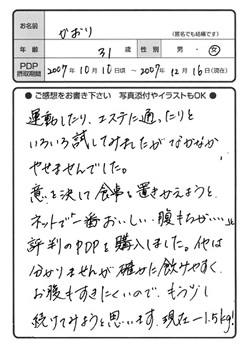 お名前 かおり (匿名でも結構です)
年齢 31歳 性別 男・女
PDP摂取期間 2007年10月10日頃 ~ 2007年12月16日(現在)
●ご感想をお書き下さい 写真添付やイラストもOK●
運動したり、エステに通ったりと
いろいろ試してみましたがなかなか
やせませんでした。
意を決して食事を置きかえようと
ネットで"一番おいしい・腹もちが・・・"と
評判のPDPを購入しました。他は
分かりませんが確かに飲みやすく
お腹もすきにくいので、もう少し
続けてみようと思います。現在-1.5kg!